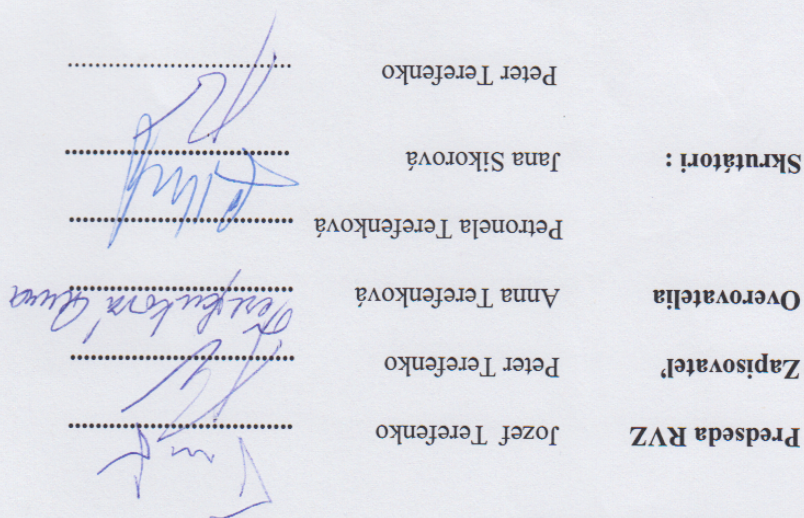 Predseda RVZ Jozef Terefenko ....................
Zapisovateľ Peter Terefenko ....................
Overovatelia Anna Terefenková .................... Terefenková Anna
Petronela Terefenková ....................
Skrutátori : Jana Sikorová ....................
Peter Terefenko ....................